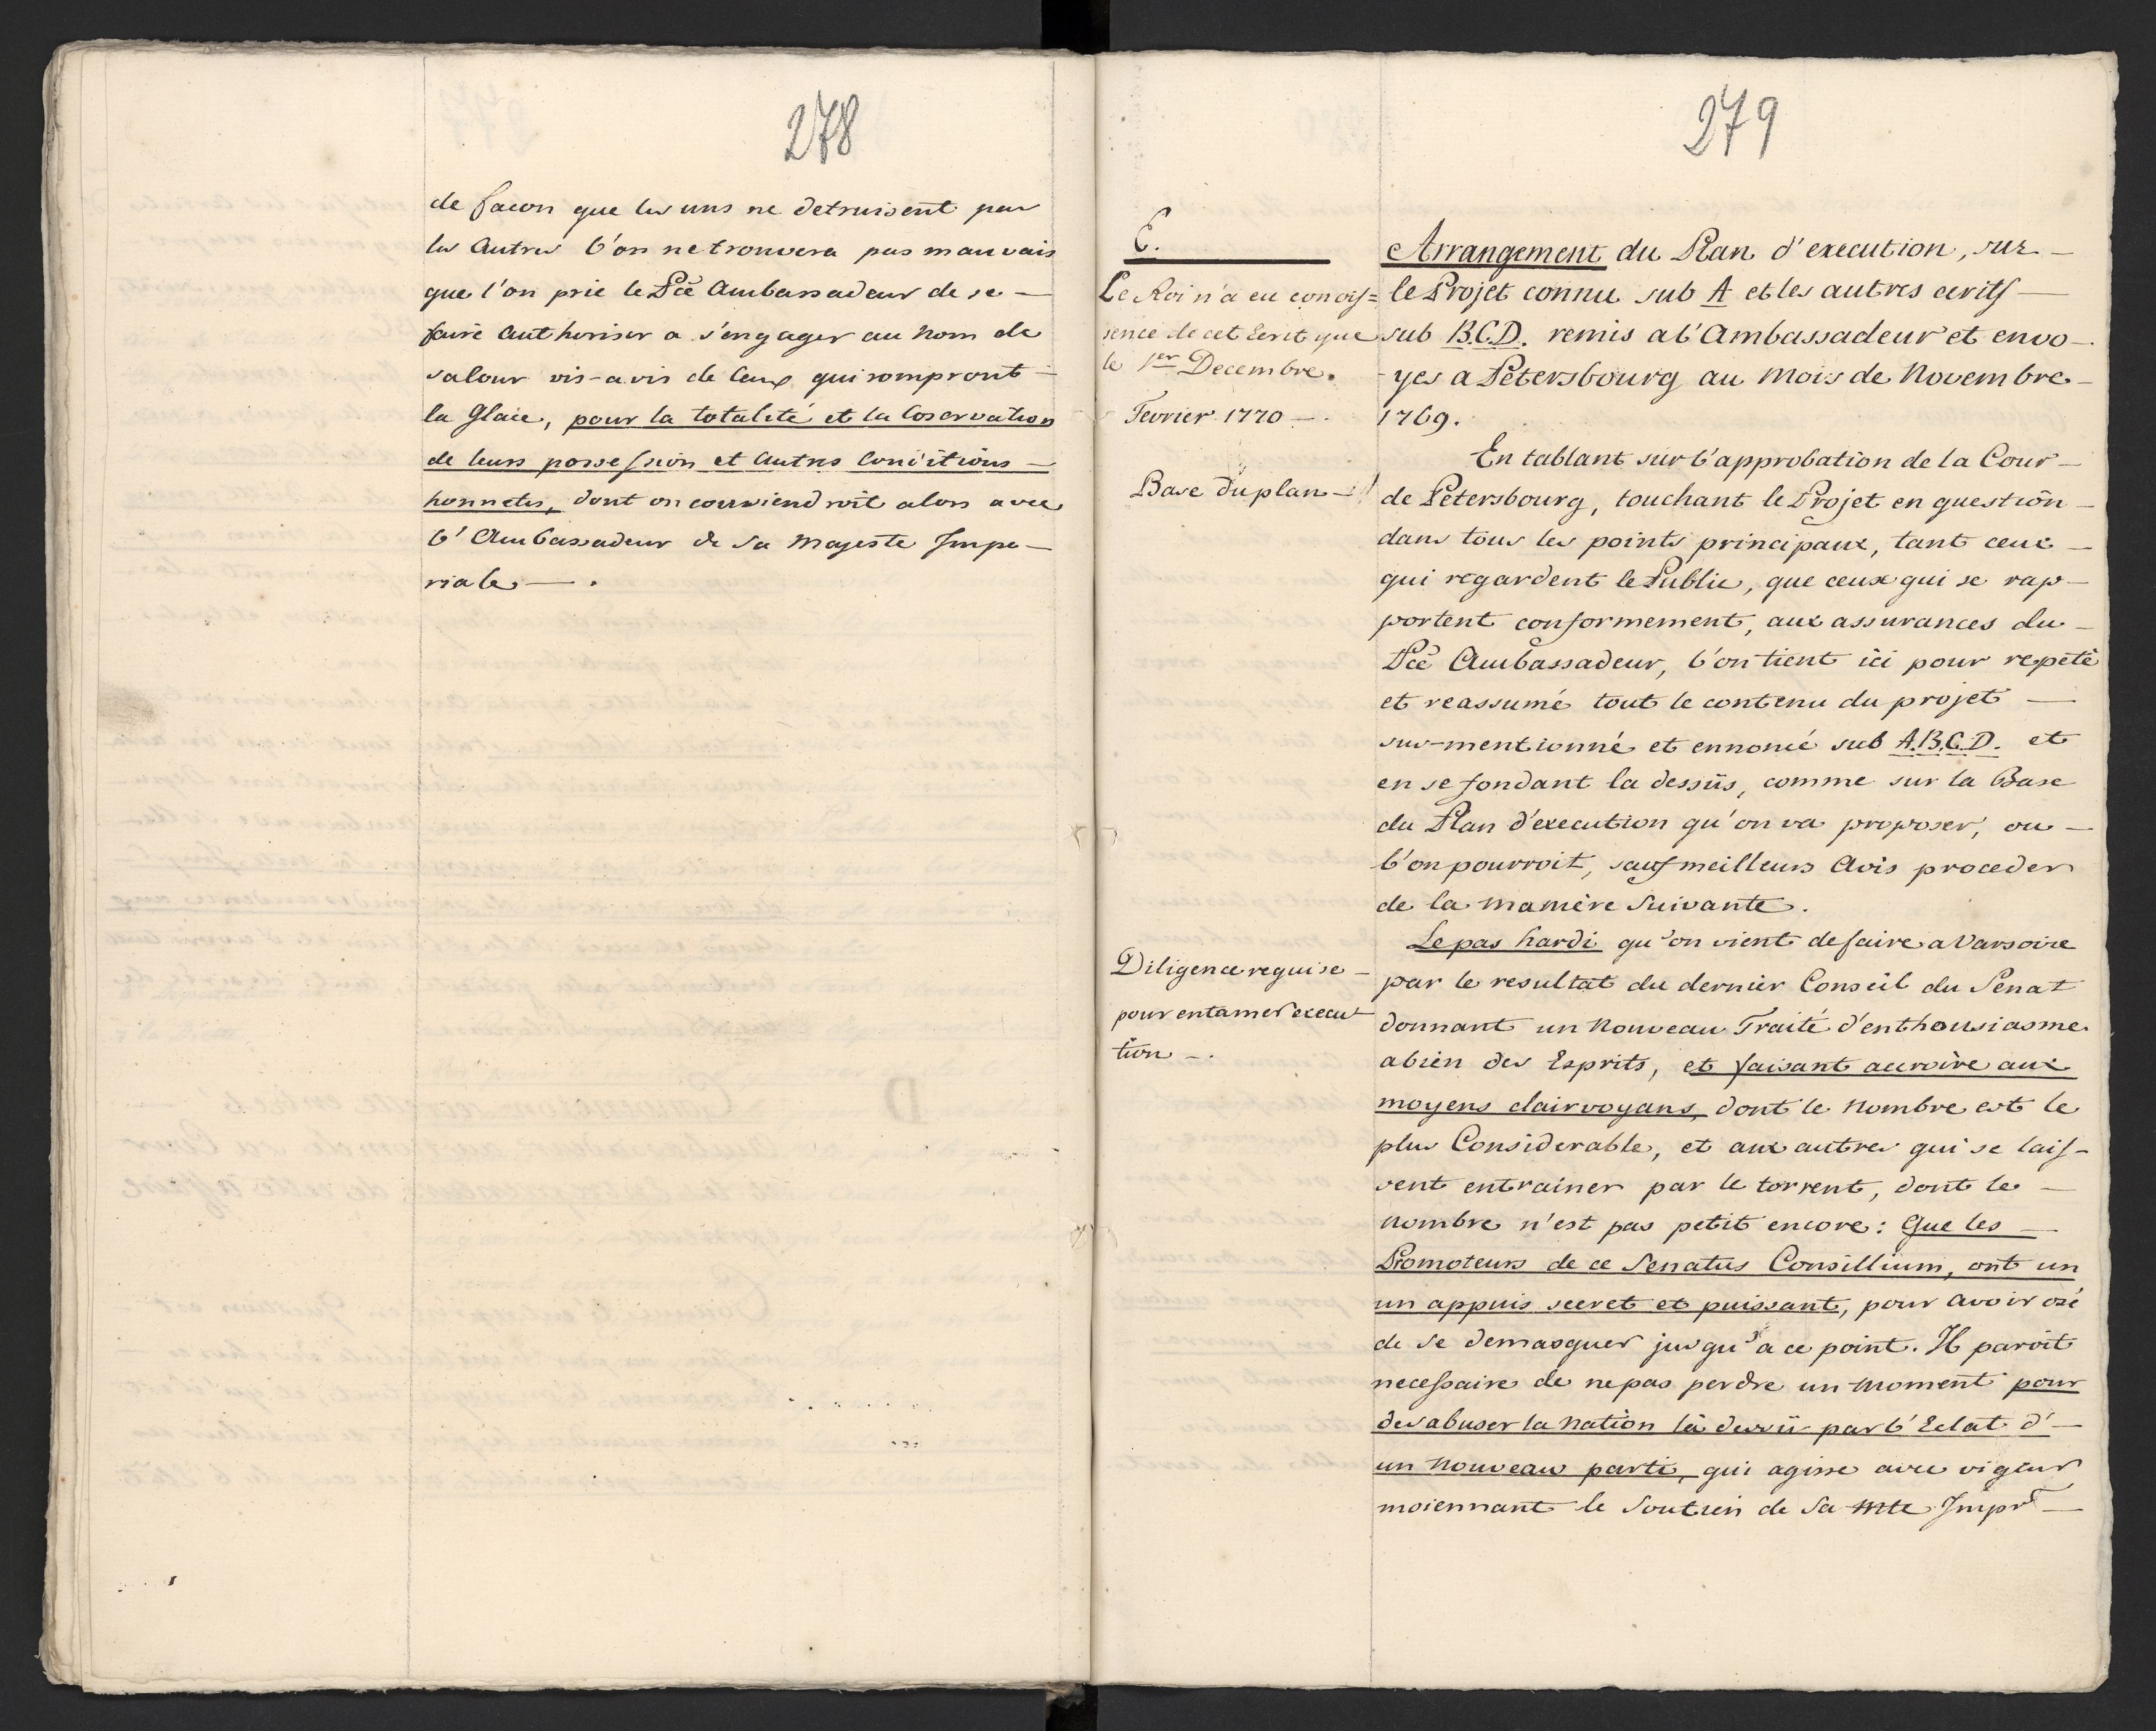 278
de facon que les uns ne detruisent pas
les Autres l'on ne trouvera pas mauvais
que l'on prie le Pce Ambassadeur de se —
faire Authoriser a s'engager au Nom de
sa Cour vis-a vis de Ceux qui rompront —
la Glace, pour la totalité et la Coservation
de leurs possession et Autres Conditions —
honnetes, dont on conviendroit alors avec
l'Ambassadeur de Sa Majeste Impe —
riale — .
279
E.
Le Roi n'a eu conois=
sence de cet Ecrit que
le 1er Decembre.
Fevrier 1770 — .
Base du plan —
Diligence requise —
pour entamer execu
tion — .
Arrangement du Plan d'execution, sur —
le Projet connu sub A et les autres ecrits —
sub B.C.D. remis a l'Ambassadeur et envo —
yes a Petersbourg au Mois de Novembre —
1769.
En tablant sur l'approbation de la Cour —
de Petersbourg, touchant le Projet en question —
dans tous les points principaux, tant ceux —
qui regardent le Public, que ceux qui se rap —
portent conformement, aux assurances du —
Pce Ambassadeur, l'on tient ici pour repeté
et reassumé tout le contenu du projet —
sus-mentionné et ennoncé sub A.B.C.D. et
en se fondant la dessus, comme sur la Base
du Plan d'execution qu'on va proposer, ou —
l'on pourroit, sauf meilleurs Avis proceder
de la Maniere Suivante.
Le pas hardi qu'on vient de faire a Varsovie
par le resultat du dernier Conseil du Senat
donnant un Nouveau Traité d'enthousiasme
a bien des Esprits, et faisant accroire aux
moyens clairvoyans, dont le Nombre est le
plus Considerable, et aux autres qui se lais-
sent entrainer par le torrent, dont le —
Nombre n'est pas petit encore: Que les —
Promoteurs de ce Senatus Consillium, ont un
un appuis secret et puissant, pour avoir osé
de se demasquer jusqu'a ce point. Il paroit
necessaire de ne pas perdre un Moment pour
desabuser la Nation la dessus par l'Eclat d' —
un Nouveau parti, qui agisse avec vigeur
moiennant le Soutien de Sa Mte Imprl —